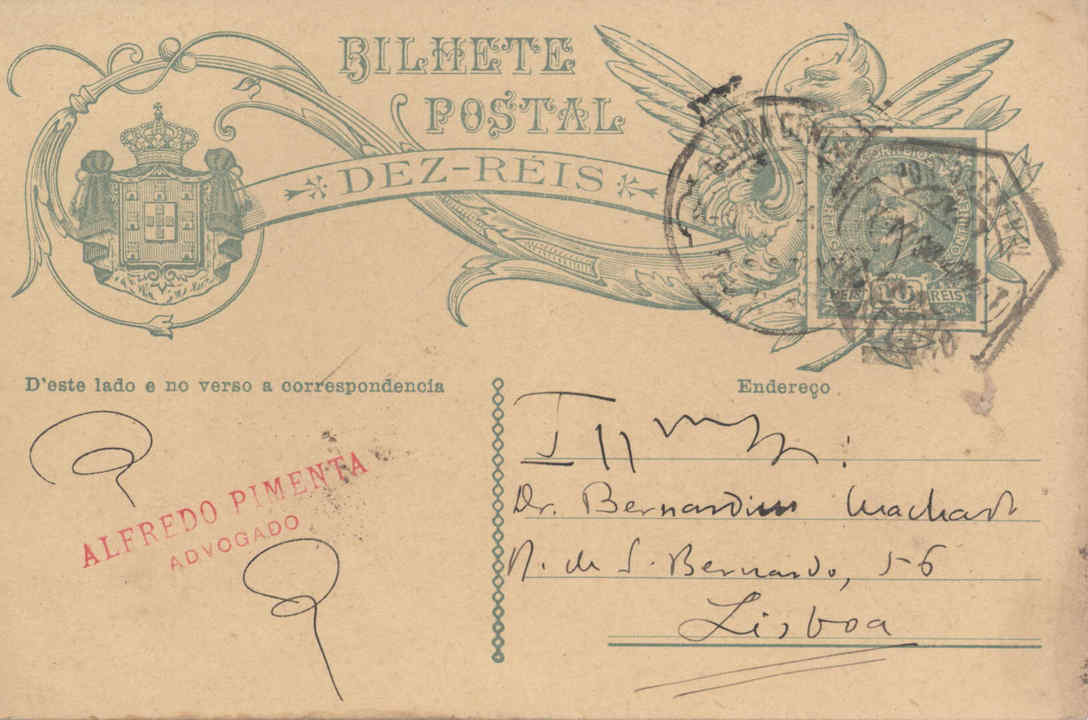 BILHETE
POSTAL
DEZ-RÉIS
CORREIOS
10
REIS REIS
D'este lado e no verso a correspondencia
Endereço
ALFREDO PIMENTA
ADVOGADO
Dr. Bernardino Machado
R. de S. Bernardo, 56
Lisboa